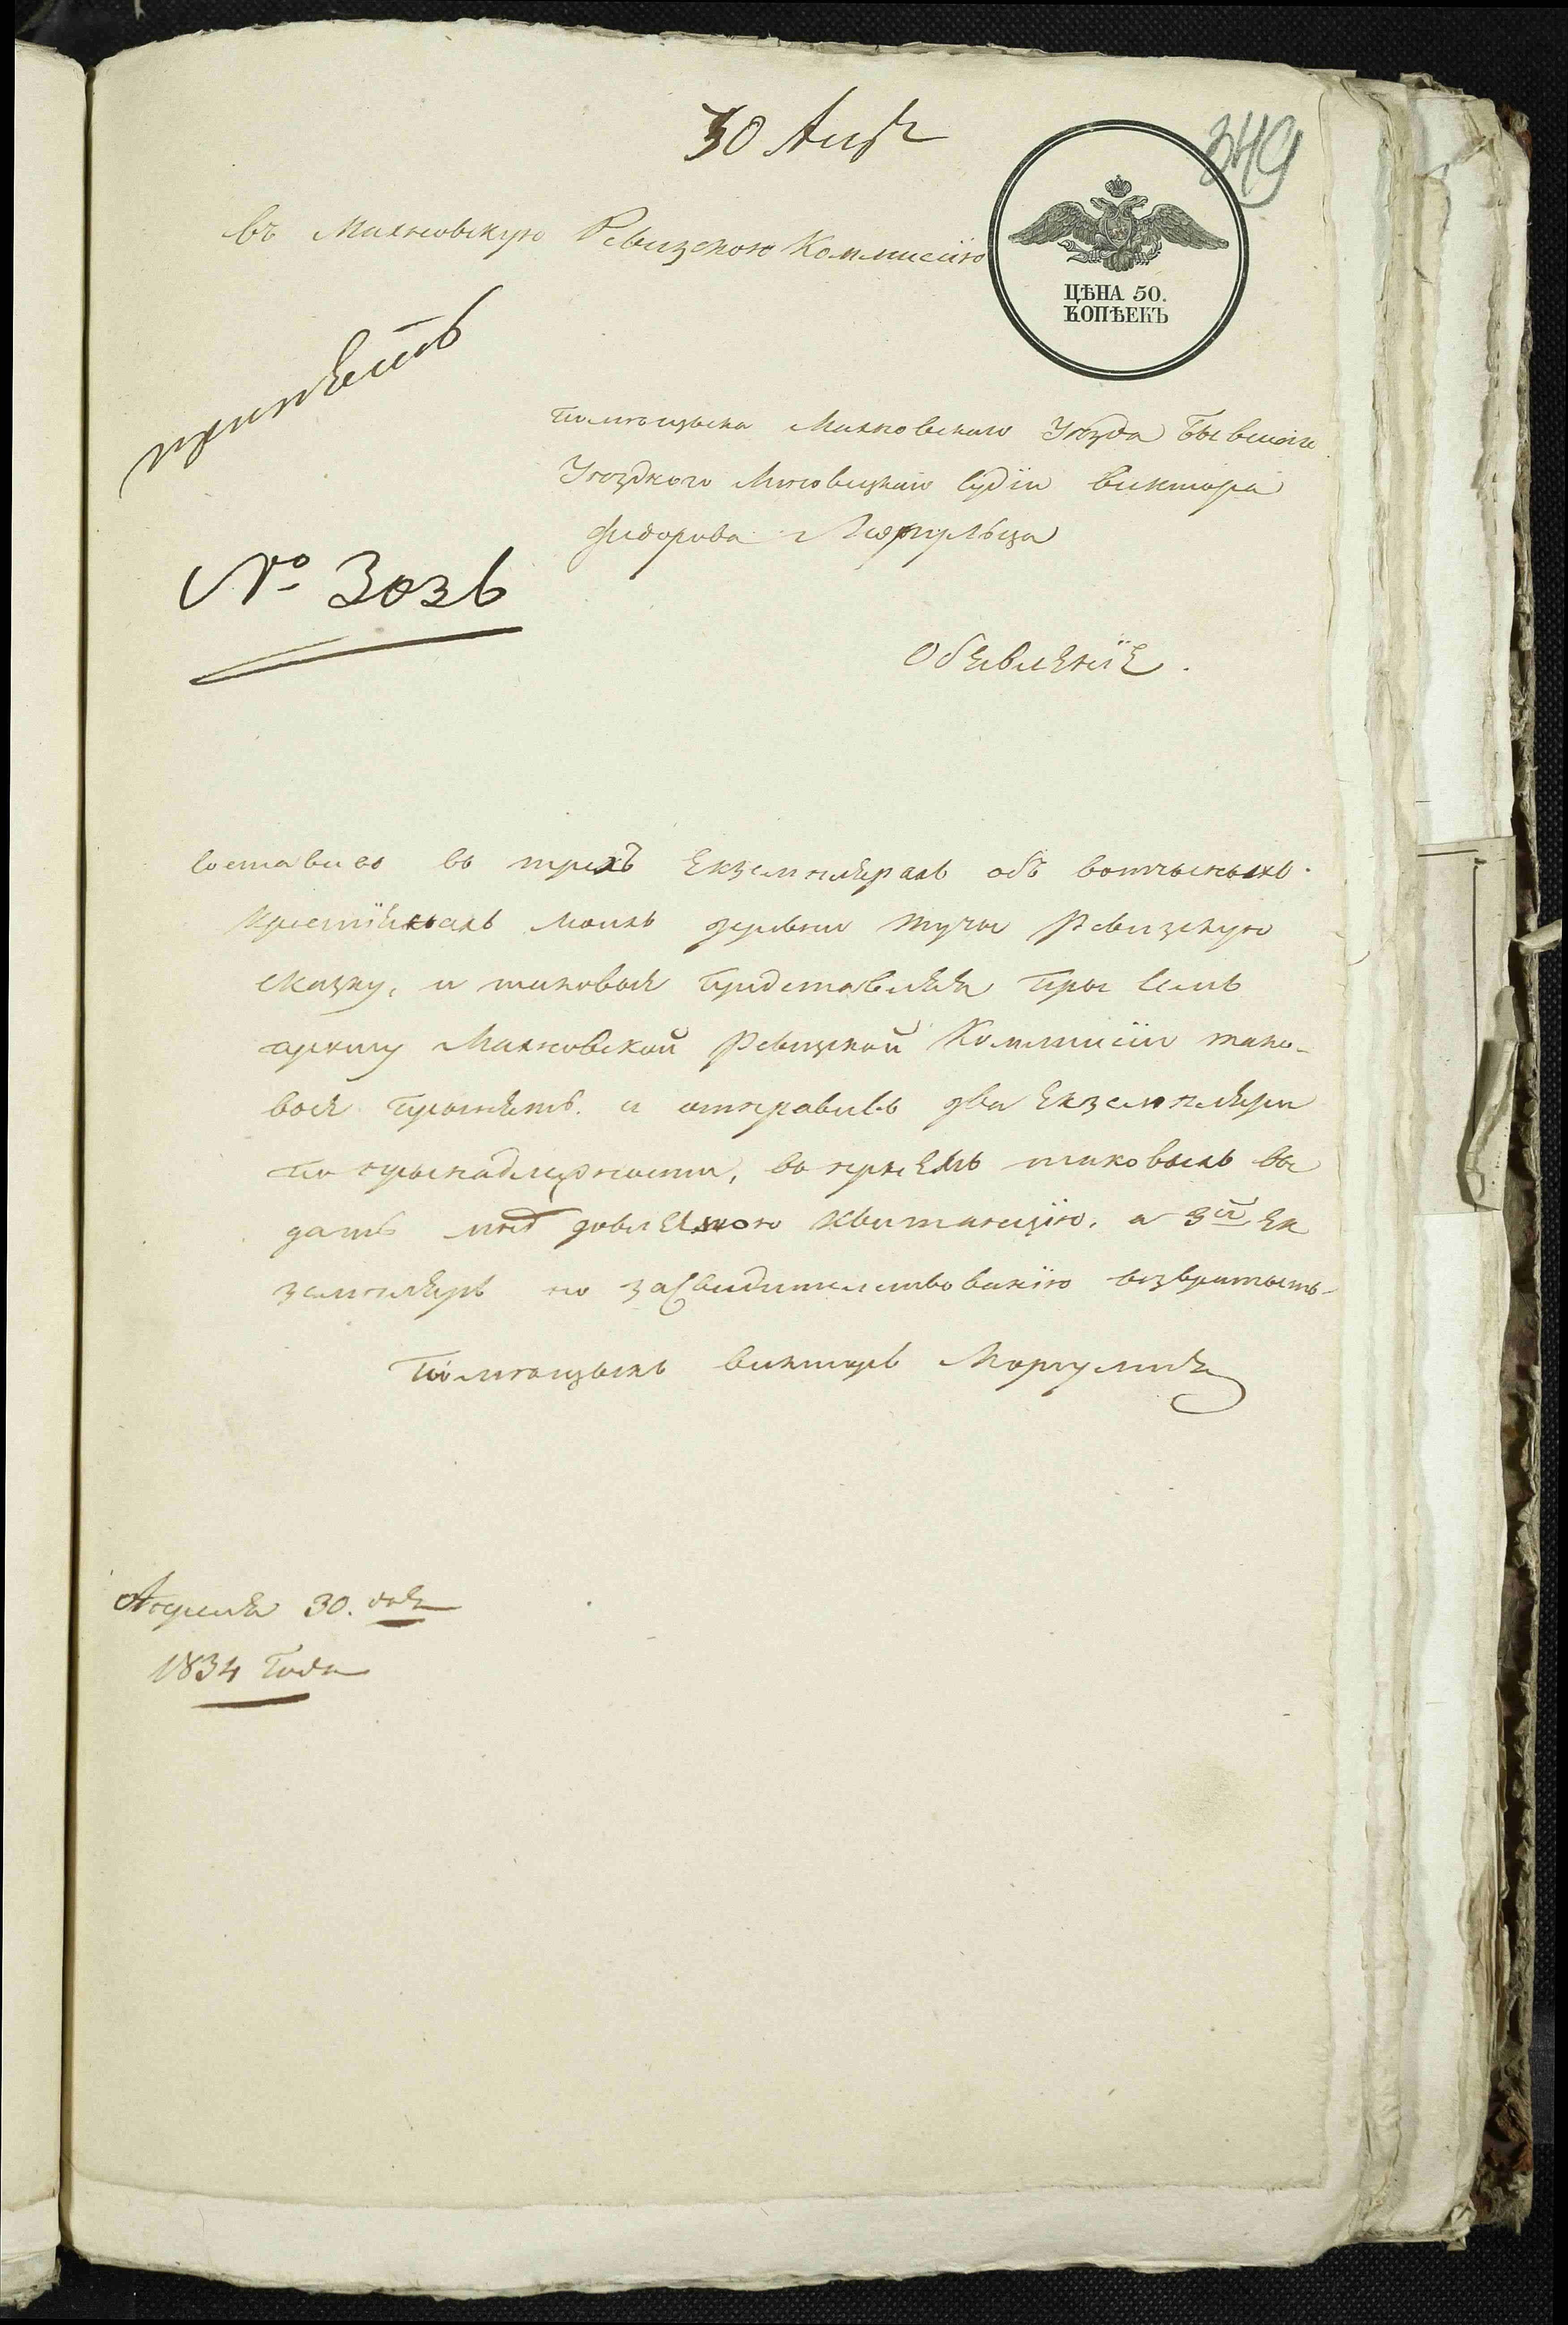 30 Апр
349
Въ Махновскую Ревизскою Коммисiю
ЦѢНА 50.
КОПѢЕКЪ
принять
Помѣщыка Махновскаго Уѣзда Бывшаго
Уѣзднаго Судiи Виктора
Федорова
№ 3036
Объявленiе.
Составивъ въ трехъ Екземплярахъ объ вотчыныхъ
крестіянахъ моихъ деревни Тучы Ревизскую
сказку, и таковыя Представляя Пры семъ
прошу Махновской Ревизской Коммисiи тако-
выя Прынять и отправивъ два Екземпляры
По прынадлежности, въ прыемѣ таковыхъ вы
дать мнѣ квитанцiю, а 3й Ек
земпляръ по засвидителствованiю возвратыть
Помѣщыкъ Викторъ Моргулецъ
Апреля 30. дня
1834 Года